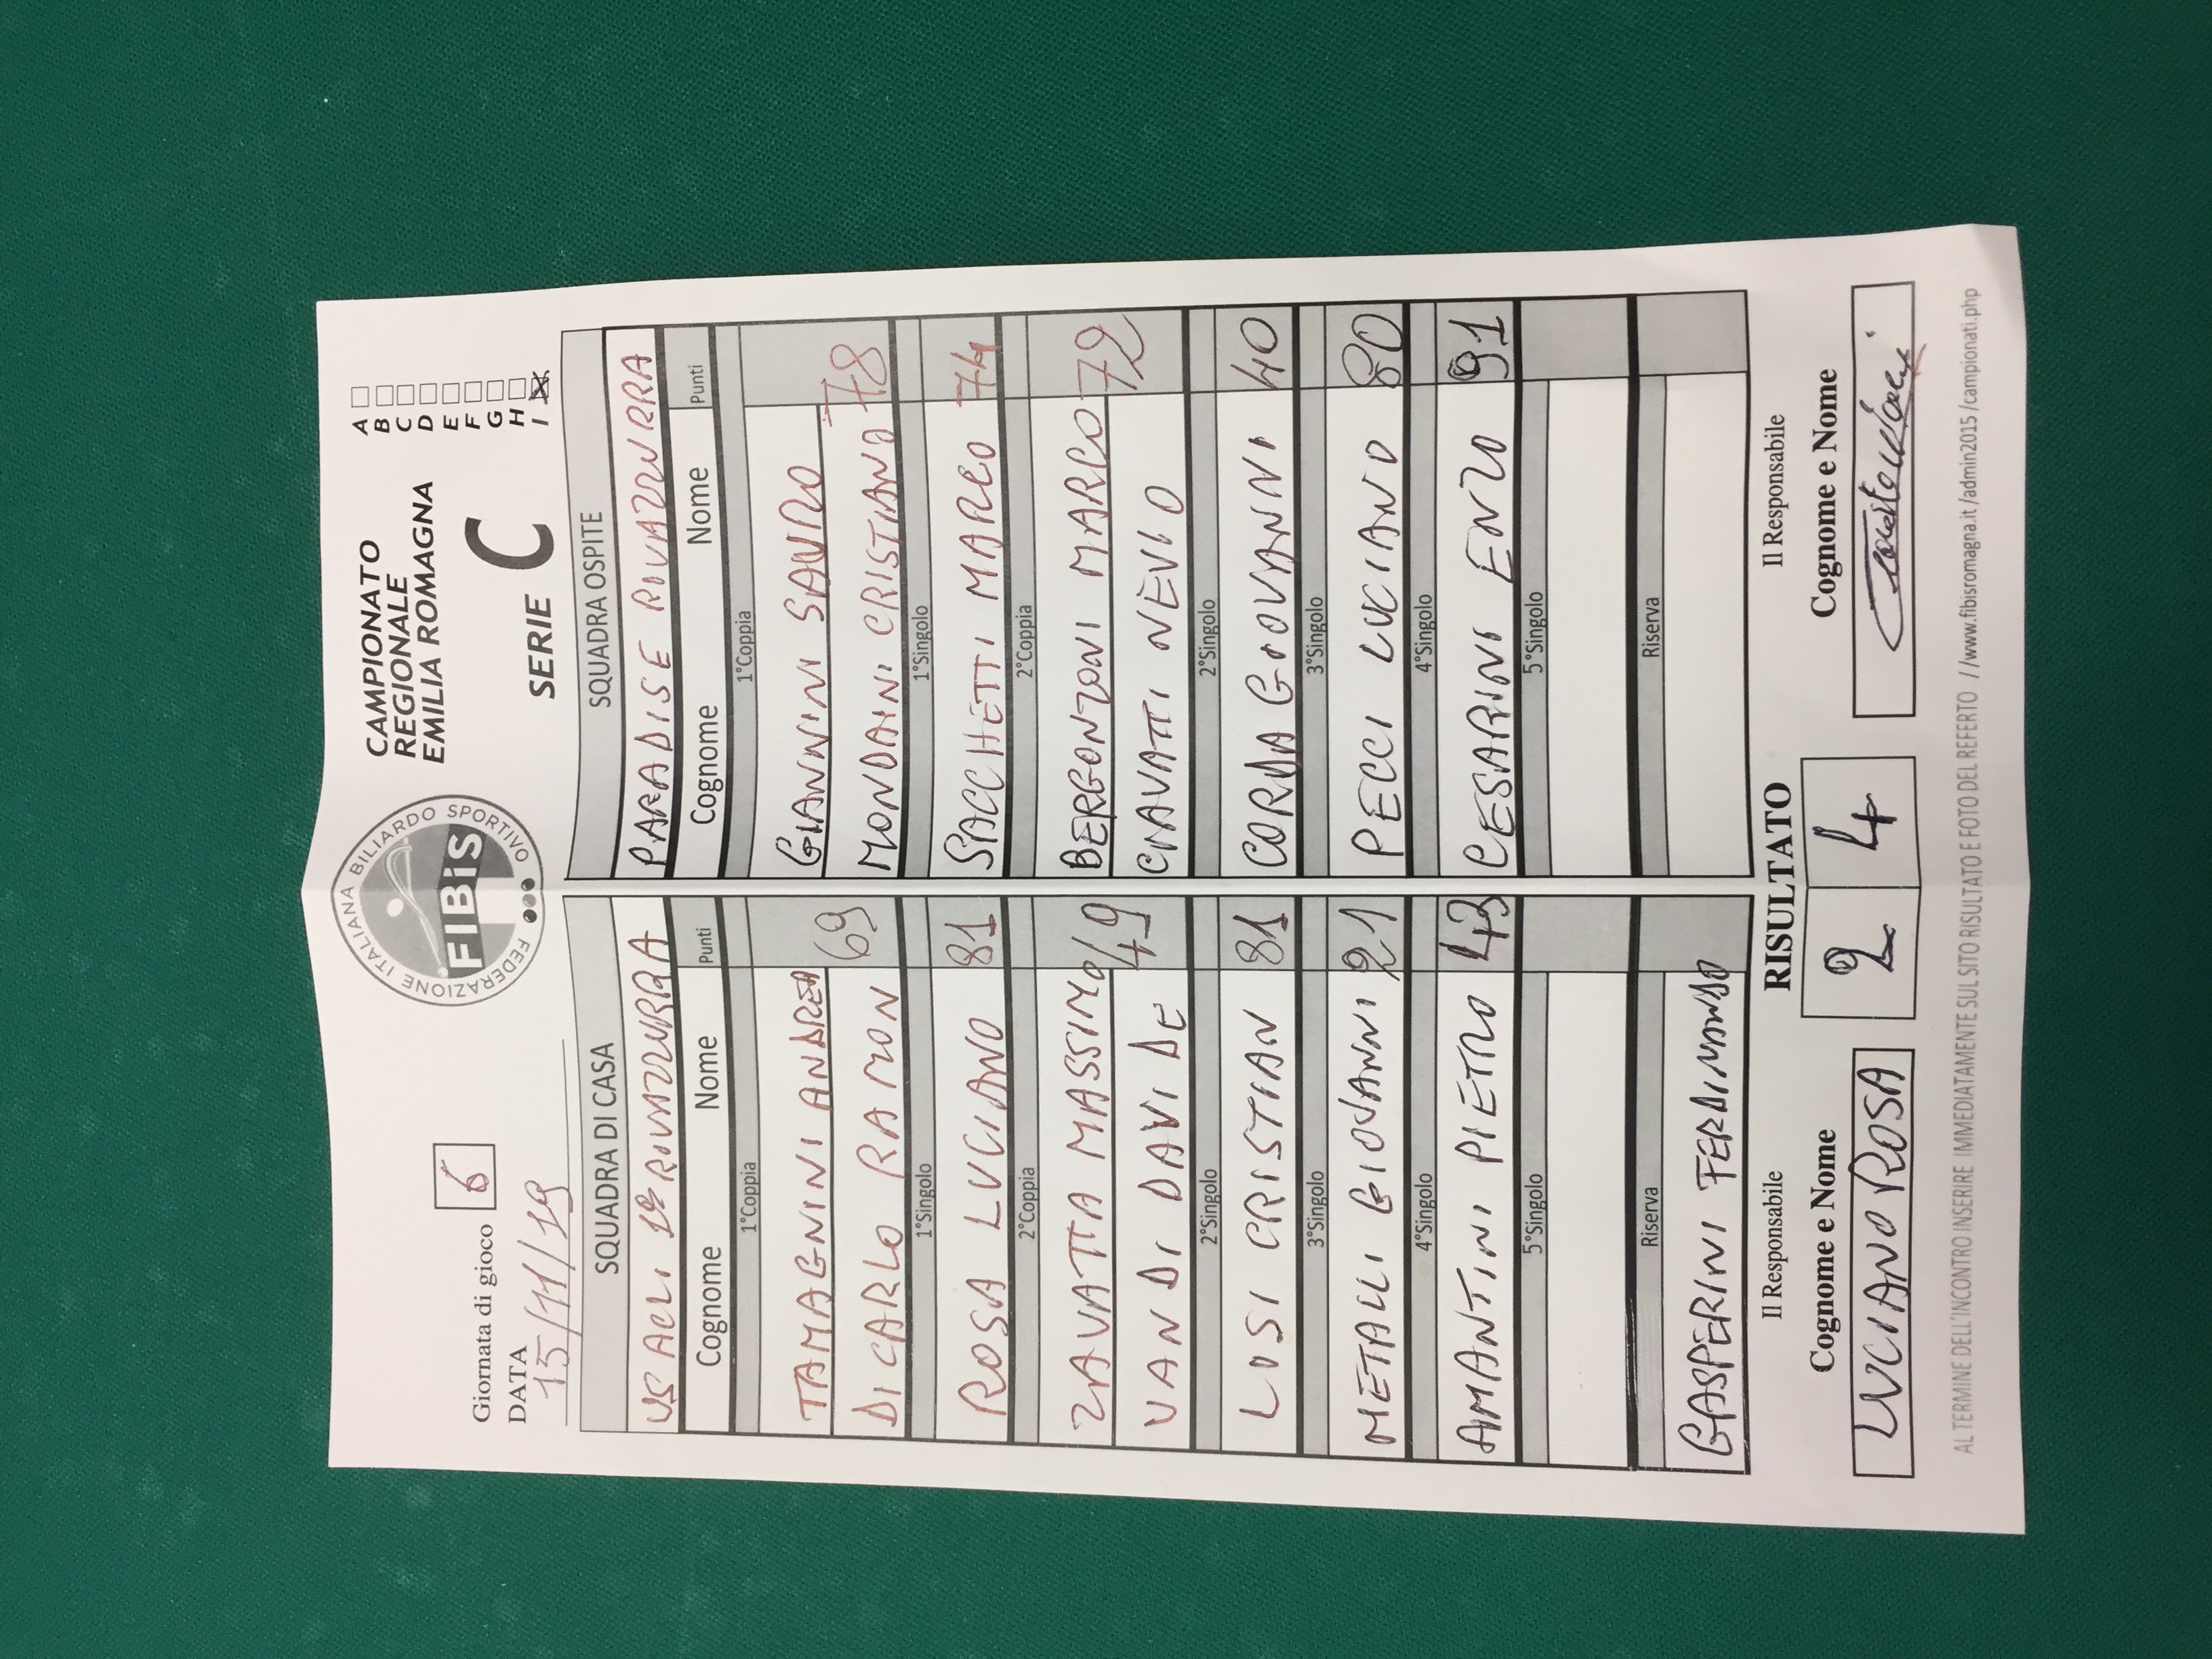 Giornata di gioco 6
DATA
15/11/19
FEDERAZIONE ITALIANA BILIARDO SPORTIVO
FIBiS
CAMPIONATO
REGIONALE
EMILIA ROMAGNA
SERIE C
A
B
C
D
E
F
G
H
I X
SQUADRA DI CASA
US ACLI 1° RIVAZZURRA
Cognome Nome Punti
1°Coppia
TAMAGNINI ANDREA
DI CARLO RAMON 69
1°Singolo
ROSA LUCIANO 81
2°Coppia
ZAVATTA MASSIMO
VANDI DAVIDE 49
2°Singolo
LOSI CRISTIAN 81
3°Singolo
METALLI GIOVANNI 21
4°Singolo
AMANTINI PIETRO 43
5°Singolo
Riserva
GASPERINI FERDINANDO
SQUADRA OSPITE
PARADISE RIVAZZURRA
Cognome Nome Punti
1°Coppia
GIANNINI SAURO
MONDAINI CRISTIANO 78
1°Singolo
SACCHETTI MARCO 74
2°Coppia
BERGONZONI MARCO
CRAVATTI NEVIO 72
2°Singolo
CORDA GIOVANNI 40
3°Singolo
PECCI LUCIANO 80
4°Singolo
CESARINI ENZO 91
5°Singolo
Riserva
Il Responsabile
Cognome e Nome
LUCIANO ROSA
RISULTATO
2 4
Il Responsabile
Cognome e Nome
AL TERMINE DELL'INCONTRO INSERIRE IMMEDIATAMENTE SUL SITO RISULTATO E FOTO DEL REFERTO //www.fibisromagna.it/admin2015/campionati.php